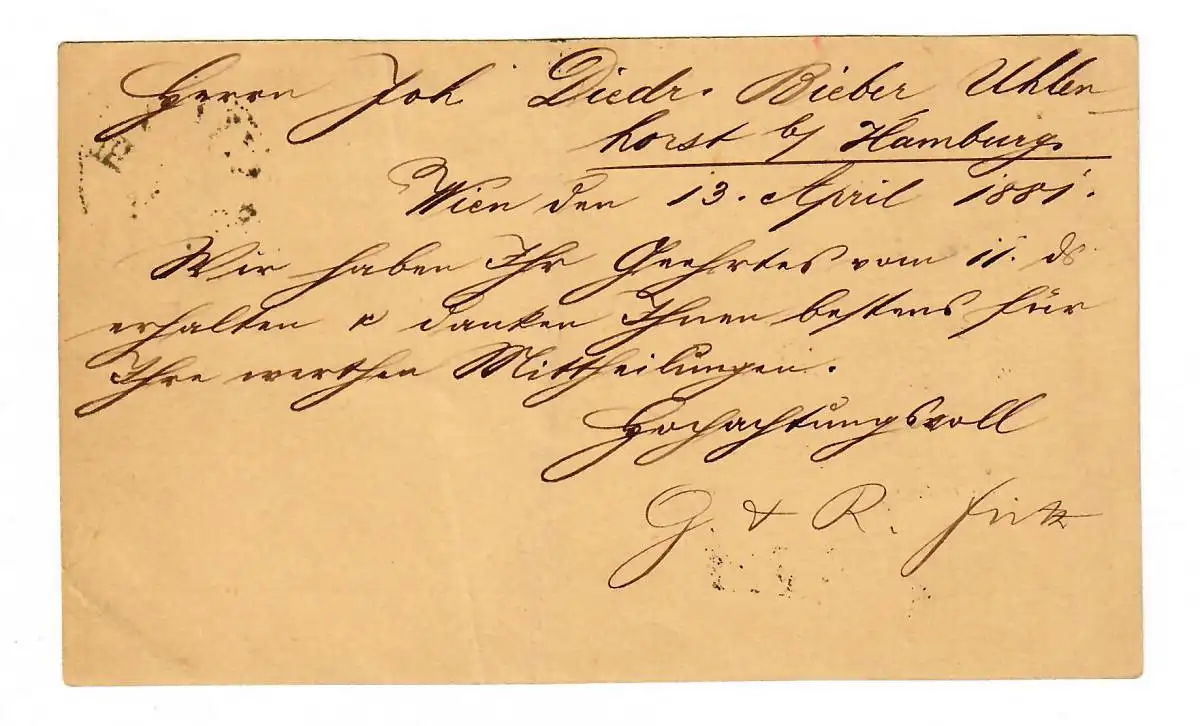 Herrn Joh. Diedr. Bieber Uhlen-
horst b/ Hamburg.
Wien den 13. April 1881.
Wir haben Ihr Geehrtes vom 11. ds
erhalten & danken Ihnen bestens für
Ihre werthen Mittheilungen.
Hochachtungsvoll
G. & R. Fritz